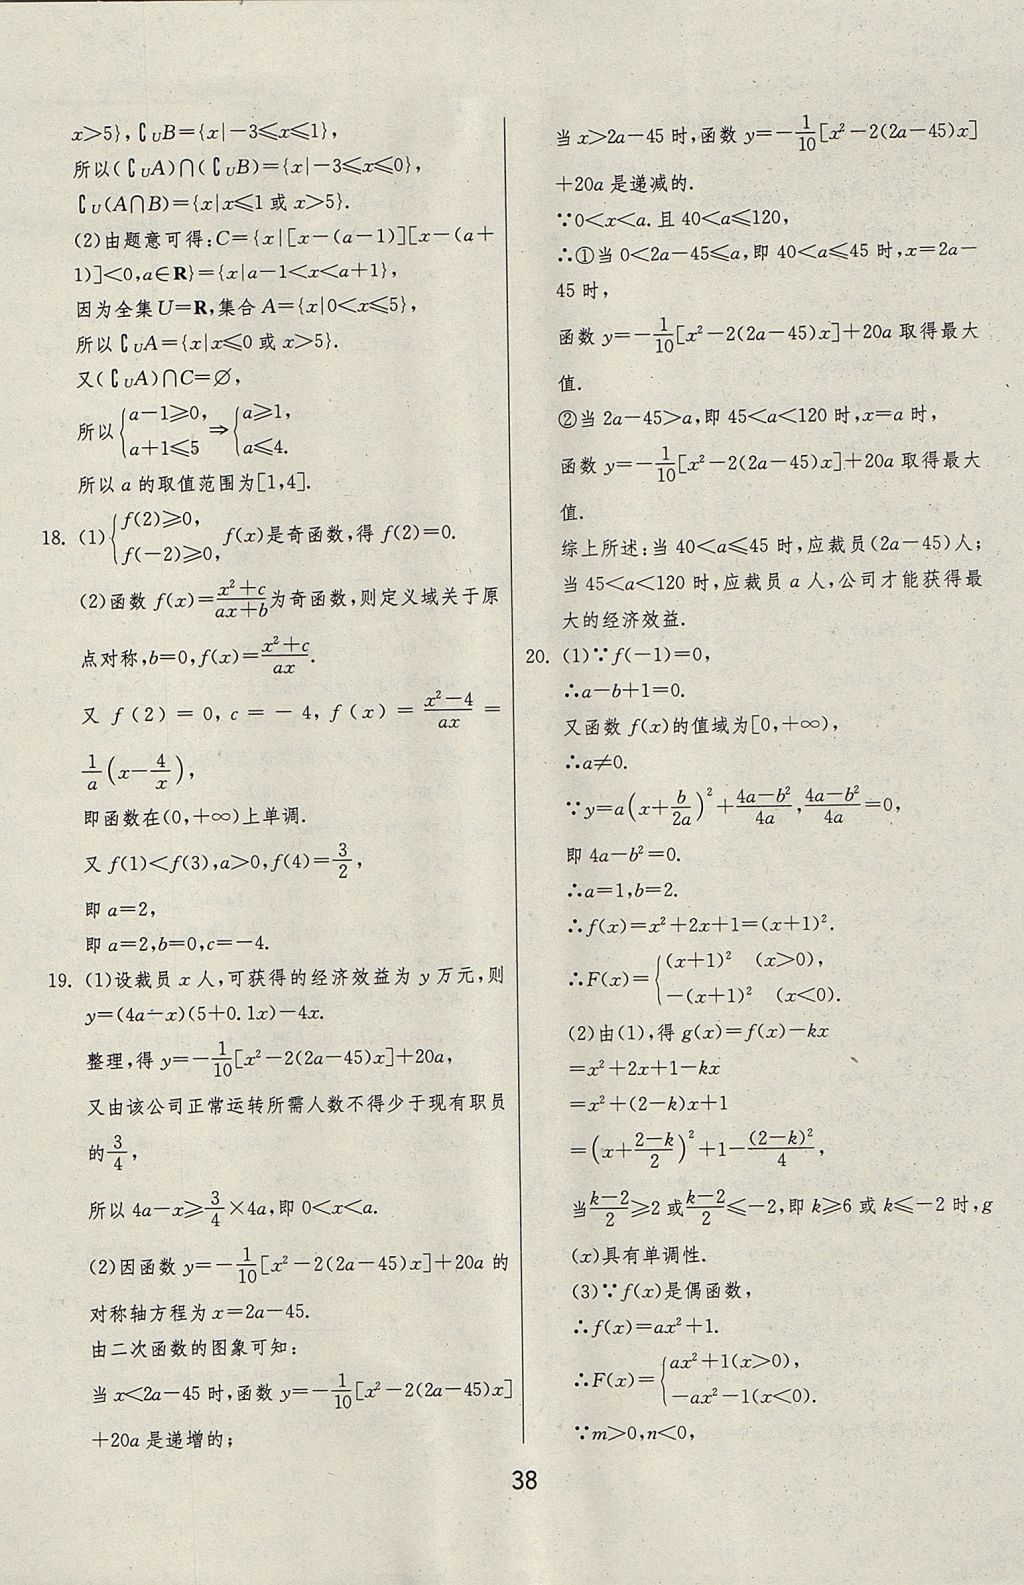 x>5},∁UB={x|-3⩽x⩽1},
所以(∁UA)∩(∁UB)={x|-3⩽x⩽0},
∁U(A∩B)={x|x⩽1或x>5}.
(2)由题意可得:C={x|[x-(a-1)][x-(a+
1)]<0,a∈R}={x|a-1<x<a+1},
因为全集U=R,集合A={x|0<x⩽5},
所以∁UA={x|x⩽0或x>5}.
又(∁UA)∩C=∅,
所以{a-1⩾0, a+1⩽5 ⇒ {a⩾1, a⩽4.
所以a的取值范围为[1,4].
18. (1){f(2)⩾0, f(-2)⩾0, f(x)是奇函数,得f(2)=0.
(2)函数f(x)=(x²+c)/(ax+b)为奇函数,则定义域关于原
点对称,b=0,f(x)=(x²+c)/(ax).
又f(2)=0,c=-4,f(x)=(x²-4)/(ax)=
1/a(x-4/x),
即函数在(0,+∞)上单调.
又f(1)<f(3),a>0,f(4)=3/2,
即a=2,
即a=2,b=0,c=-4.
19. (1)设裁员x人,可获得的经济效益为y万元,则
y=(4a-x)(5+0.1x)-4x.
整理,得y=-1/10[x²-2(2a-45)x]+20a,
又由该公司正常运转所需人数不得少于现有职员
的3/4,
所以4a-x⩾3/4×4a,即0<x<a.
(2)因函数y=-1/10[x²-2(2a-45)x]+20a的
对称轴方程为x=2a-45.
由二次函数的图象可知:
当x<2a-45时,函数y=-1/10[x²-2(2a-45)x]
+20a是递增的;
当x>2a-45时,函数y=-1/10[x²-2(2a-45)x]
+20a是递减的.
∵0<x<a.且40<a⩽120,
∴①当0<2a-45⩽a,即40<a⩽45时,x=2a-
45时,
函数y=-1/10[x²-2(2a-45)x]+20a取得最大
值.
②当2a-45>a,即45<a<120时,x=a时,
函数y=-1/10[x²-2(2a-45)x]+20a取得最大
值.
综上所述:当40<a⩽45时,应裁员(2a-45)人;
当45<a<120时,应裁员a人,公司才能获得最
大的经济效益.
20. (1)∵f(-1)=0,
∴a-b+1=0.
又函数f(x)的值域为[0,+∞),
∴a≠0.
∵y=a(x+b/2a)²+(4a-b²)/4a,(4a-b²)/4a=0,
即4a-b²=0.
∴a=1,b=2.
∴f(x)=x²+2x+1=(x+1)².
∴F(x)={(x+1)² (x>0), -(x+1)² (x<0).
(2)由(1),得g(x)=f(x)-kx
=x²+2x+1-kx
=x²+(2-k)x+1
=(x+(2-k)/2)²+1-(2-k)²/4,
当(k-2)/2⩾2或(k-2)/2⩽-2,即k⩾6或k⩽-2时,g
(x)具有单调性.
(3)∵f(x)是偶函数,
∴f(x)=ax²+1.
∴F(x)={ax²+1(x>0), -ax²-1(x<0).
∵m>0,n<0,
38